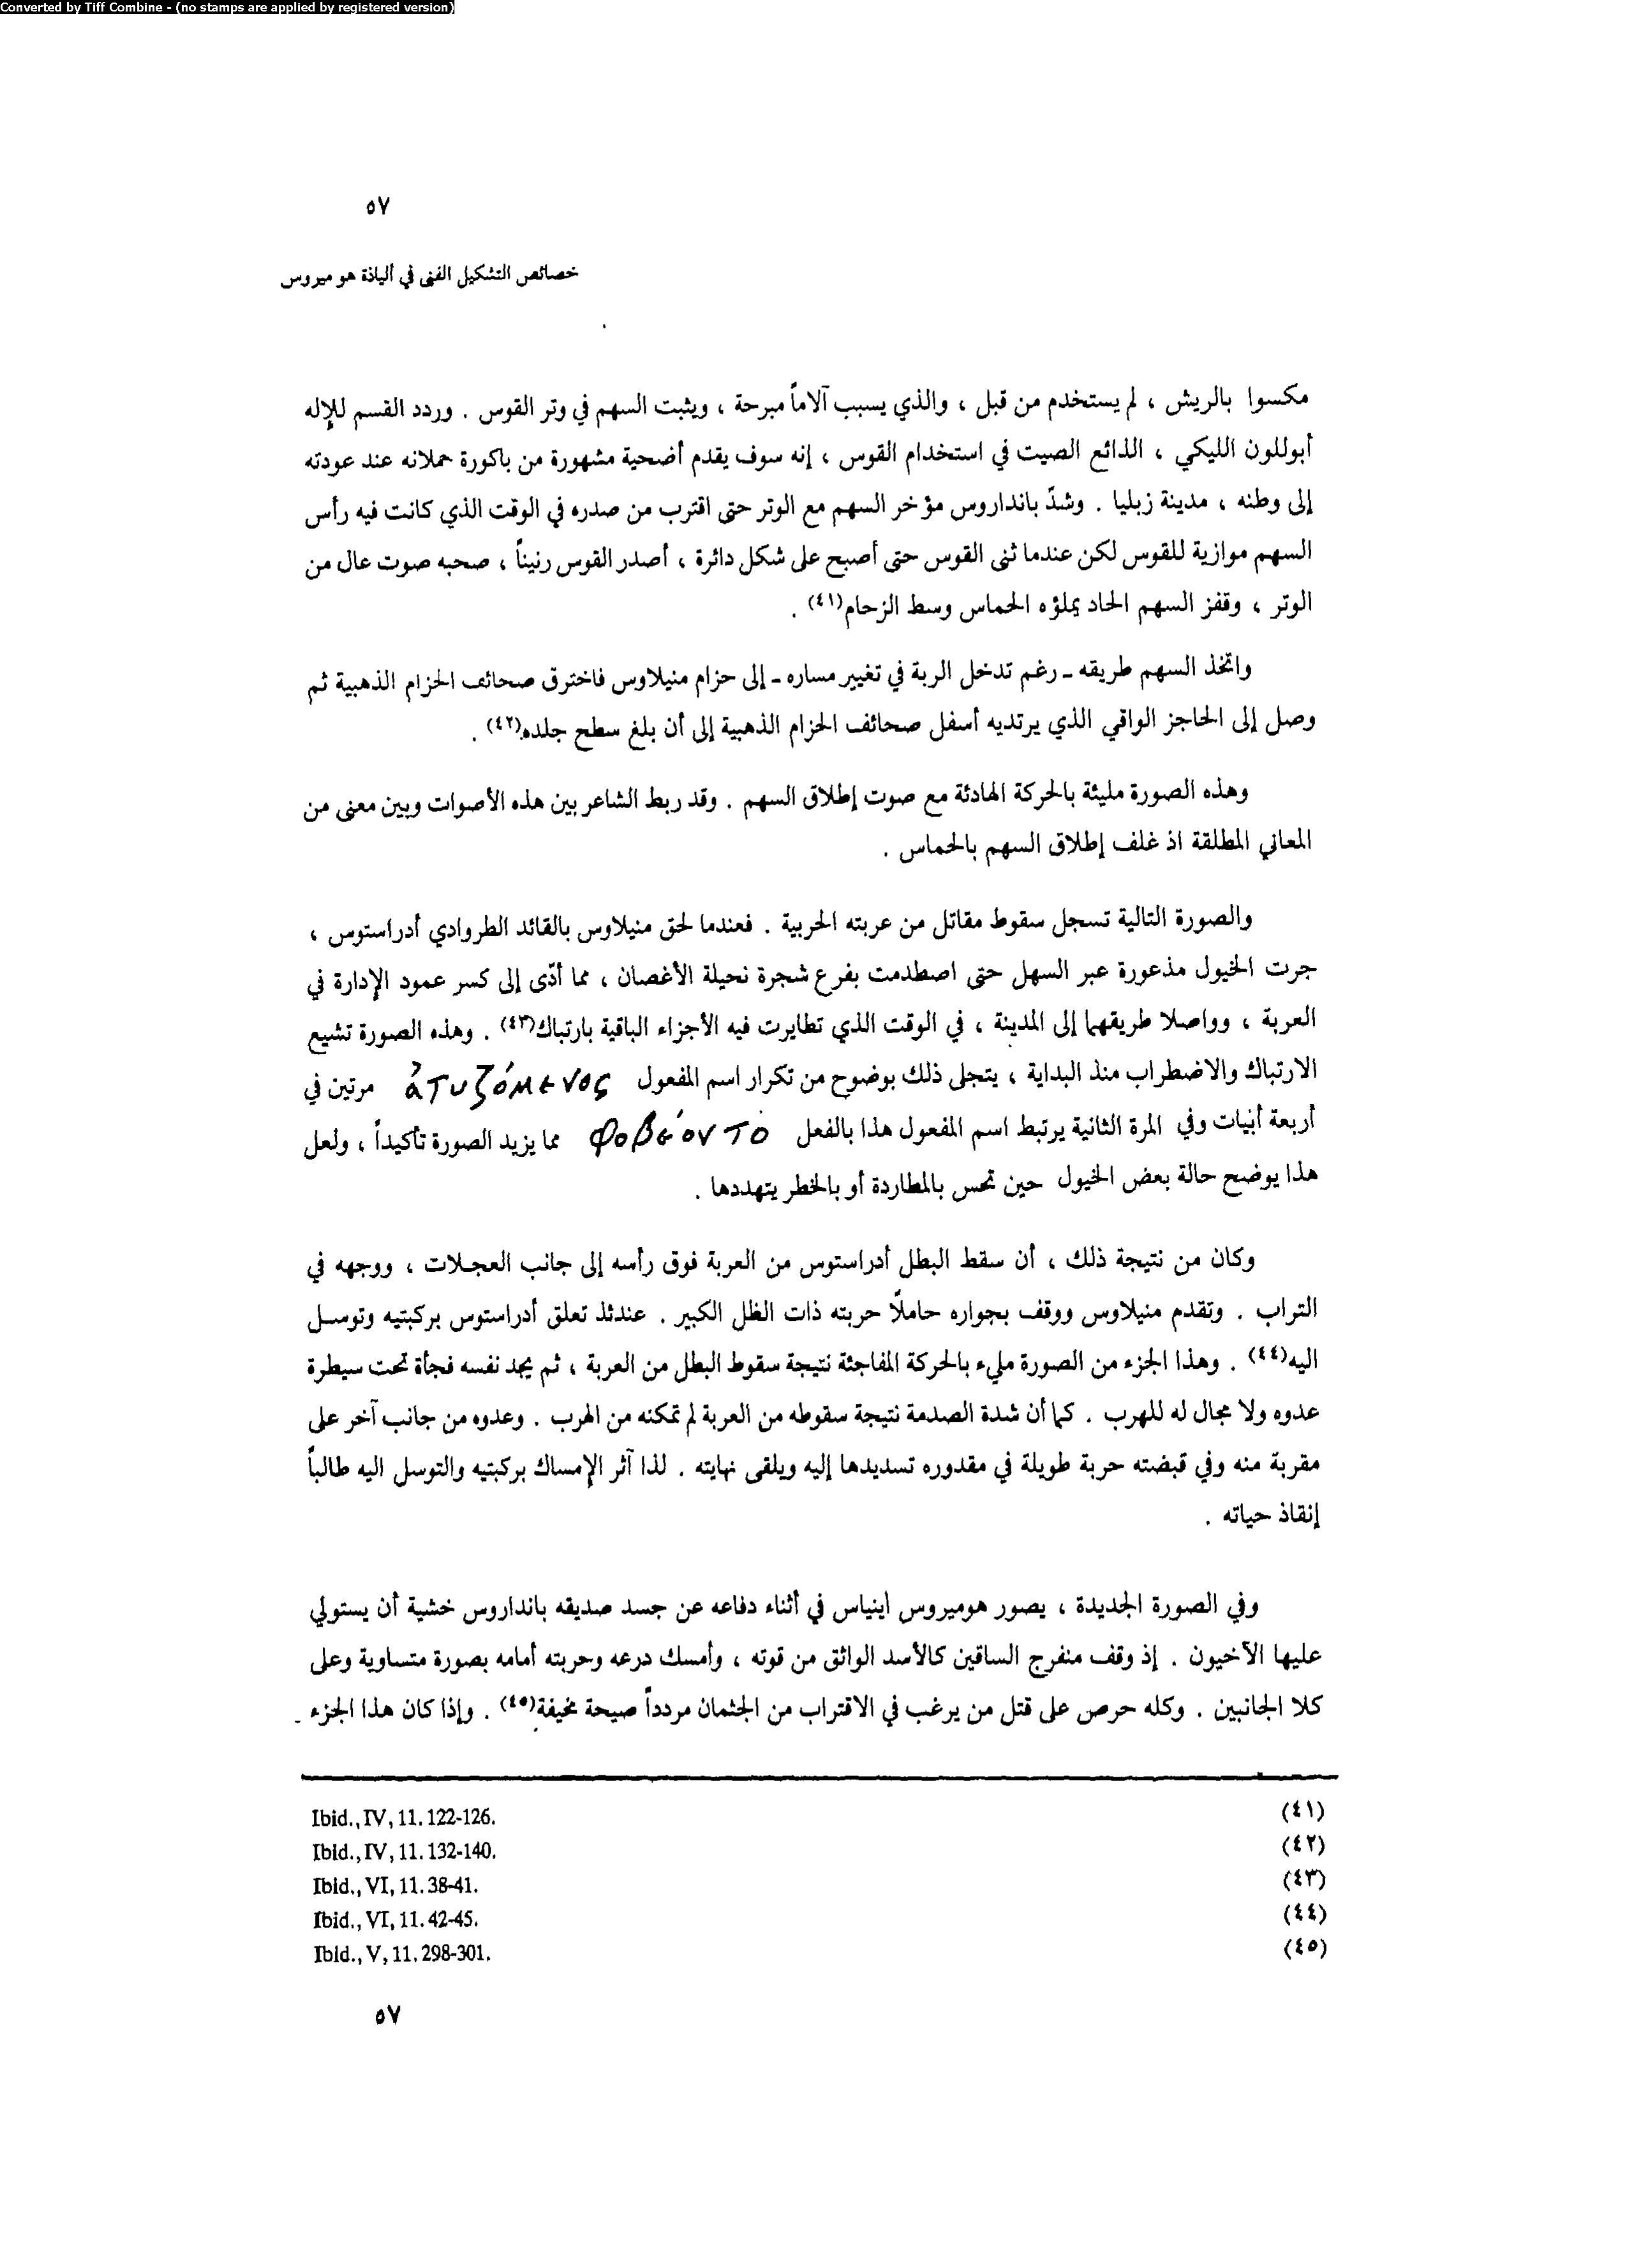 Converted by Tiff Combine - (no stamps are applied by registered version)
٥٧
خصائص التشكيل الفنى في ألياذة هو ميروس
مكسوا بالريش ، لم يستخدم من قبل ، والذي يسبب آلاماً مبرحة ، ويثبت السهم في وتر القوس . وردد القسم للإله
أبوللون الليكي ، الذائع الصيت في استخدام القوس ، إنه سوف يقدم أضحية مشهورة من باكورة حملانه عند عودته
إلى وطنه ، مدينة زبليا . وشدّ بانداروس مؤخر السهم مع الوتر حتى اقترب من صدره في الوقت الذي كانت فيه رأس
السهم موازية للقوس لكن عندما ثنى القوس حتى أصبح على شكل دائرة ، أصدر القوس رنيناً ، صحبه صوت عال من
الوتر ، وقفز السهم الحاد يملؤه الحماس وسط الزحام(٤١) .
واتخذ السهم طريقه ـ رغم تدخل الربة في تغيير مساره ـ إلى حزام منيلاوس فاخترق صحائف الحزام الذهبية ثم
وصل إلى الحاجز الواقي الذي يرتديه أسفل صحائف الحزام الذهبية إلى أن بلغ سطح جلده(٤٢) .
وهذه الصورة مليئة بالحركة الهادئة مع صوت إطلاق السهم . وقد ربط الشاعر بين هذه الأصوات وبين معنى من
المعاني المطلقة اذ غلف إطلاق السهم بالحماس .
والصورة التالية تسجل سقوط مقاتل من عربته الحربية . فعندما لحق منيلاوس بالقائد الطروادي أدراستوس ،
جرت الخيول مذعورة عبر السهل حتى اصطدمت بفرع شجرة نحيلة الأغصان ، مما أدّى إلى كسر عمود الإدارة في
العربة ، وواصلا طريقهما إلى المدينة ، في الوقت الذي تطايرت فيه الأجزاء الباقية بارتباك(٤٣) . وهذه الصورة تشيع
الارتباك والاضطراب منذ البداية ، يتجلى ذلك بوضوح من تكرار اسم المفعول ἀτυζόμενος مرتين في
أربعة أبيات وفي المرة الثانية يرتبط اسم المفعول هذا بالفعل φοβέοντο مما يزيد الصورة تأكيداً ، ولعل
هذا يوضح حالة بعض الخيول حين تحس بالمطاردة أو بالخطر يتهددها .
وكان من نتيجة ذلك ، أن سقط البطل أدراستوس من العربة فوق رأسه إلى جانب العجلات ، ووجهه في
التراب . وتقدم منيلاوس ووقف بجواره حاملاً حربته ذات الظل الكبير . عندئذ تعلق أدراستوس بركبتيه وتوسل
اليه(٤٤) . وهذا الجزء من الصورة مليء بالحركة المفاجئة نتيجة سقوط البطل من العربة ، ثم يجد نفسه فجأة تحت سيطرة
عدوه ولا مجال له للهرب . كما أن شدة الصدمة نتيجة سقوطه من العربة لم تمكنه من الهرب . وعدوه من جانب آخر على
مقربة منه وفي قبضته حربة طويلة في مقدوره تسديدها إليه ويلقى نهايته . لذا آثر الإمساك بركبتيه والتوسل اليه طالباً
إنقاذ حياته .
وفي الصورة الجديدة ، يصور هوميروس اينياس في أثناء دفاعه عن جسد صديقه بانداروس خشية أن يستولي
عليها الآخيون . إذ وقف منفرج الساقين كالأسد الواثق من قوته ، وأمسك درعه وحربته أمامه بصورة متساوية وعلى
كلا الجانبين . وكله حرص على قتل من يرغب في الاقتراب من الجثمان مردداً صيحة مخيفة(٤٥) . وإذا كان هذا الجزء
(٤١) Ibid., IV, 11. 122-126.
(٤٢) Ibid., IV, 11. 132-140.
(٤٣) Ibid., VI, 11. 38-41.
(٤٤) Ibid., VI, 11. 42-45.
(٤٥) Ibid., V, 11. 298-301.
٥٧